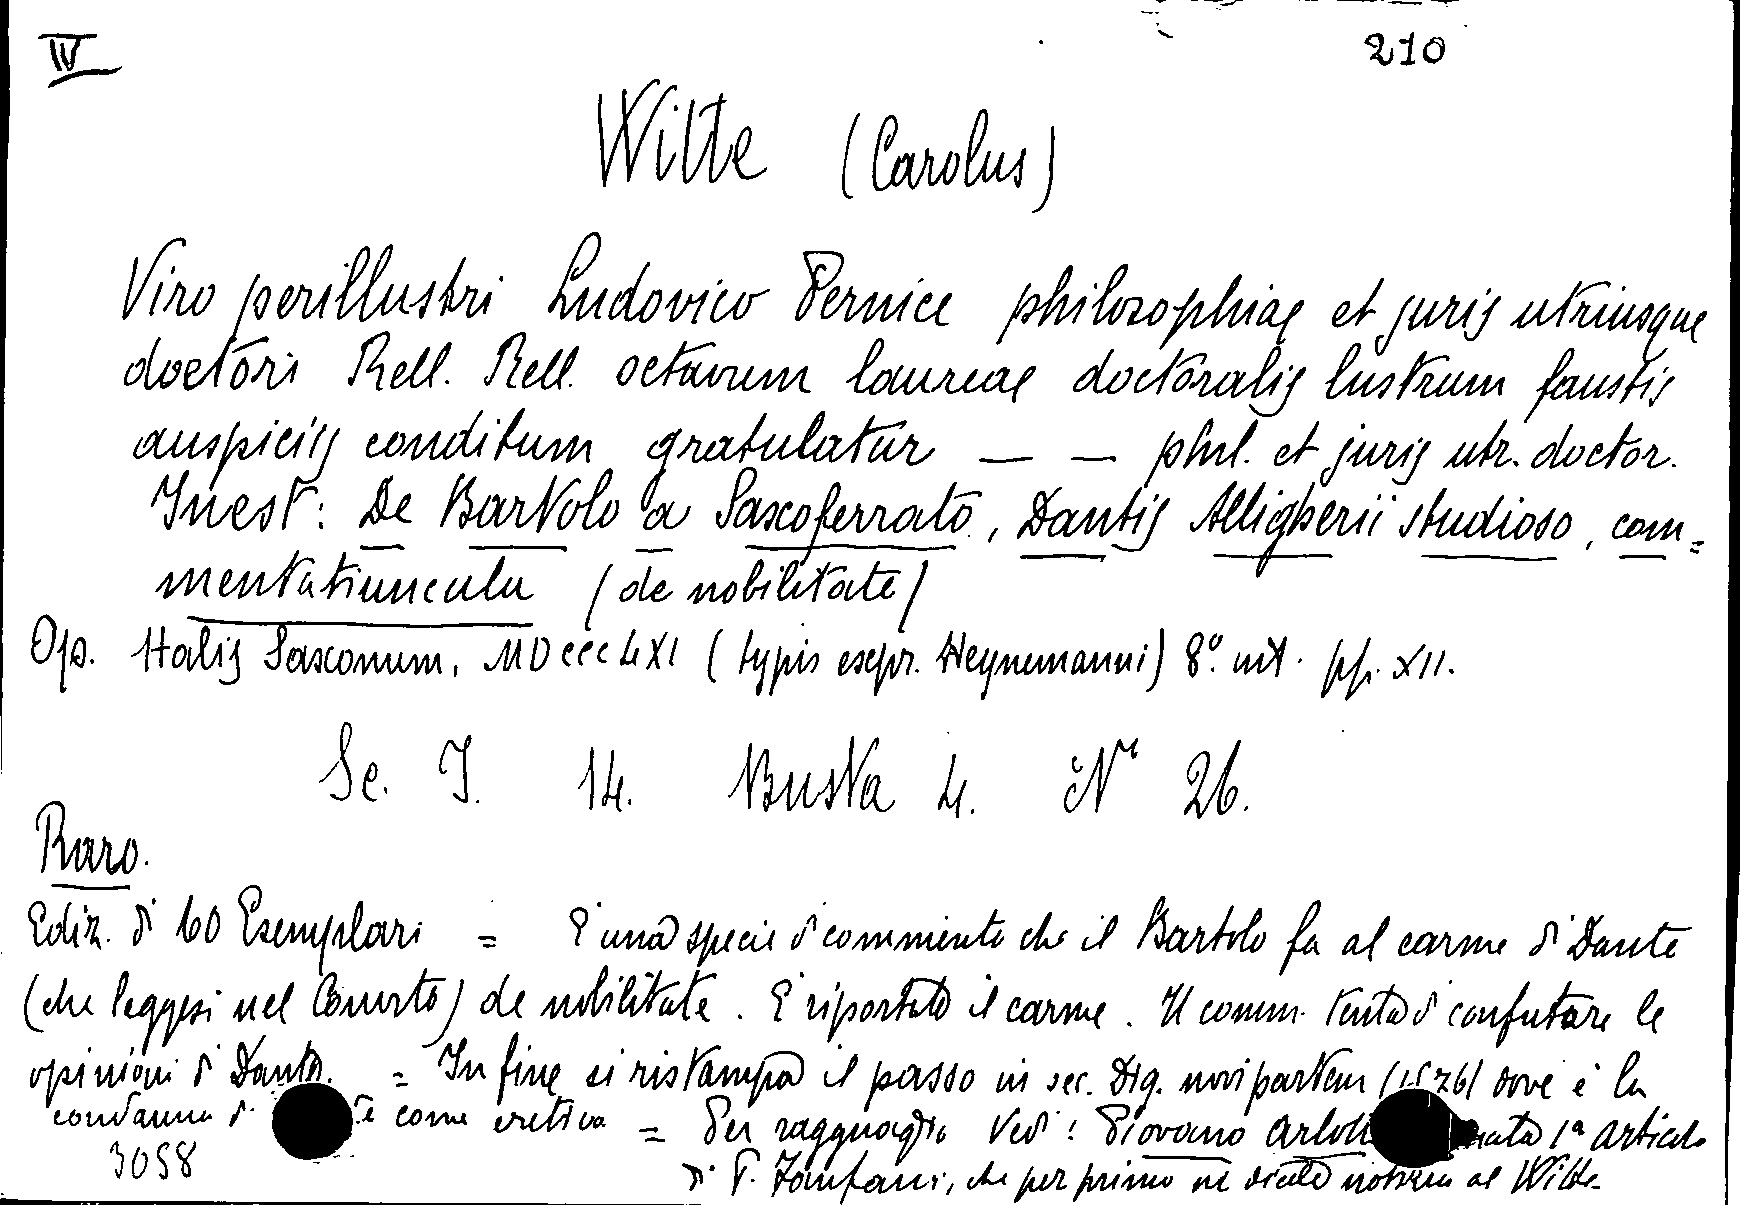 IV
210
Witte (Carolus)
Viro perillustri Ludovico Pernice philosophiae et juris utriusque
doctori Rell. Rell. octavum laureae doctoralis lustrum faustis
auspiciis conditum gratulatur — — phil. et juris utr. doctor.
Inest: De Bartolo a Saxoferrato, Dantis Alligherii studioso, com=
mentatiuncula (de nobilitate)
Op. Halis Saxonum, MDCCCLXI (typis expr. Heynemanni) 8º. int. pp. XII.
Sc. I. 14. Busta 4. Nº 26.
Raro.
Ediz. di 60 Esemplari = È una specie di commento che il Bartolo fa al carme di Dante
(che leggesi nel Convito) de nobilitate. È riportato il carme. Il comm. tenta di confutare le
opinioni di Dante. = In fine si ristampa il passo in sec. Dig. novi partem (1526) dove è la
condanna di te come eretico = Per ragguaglio Vedi: Piovano Arlotto nata 1ª articolo
3058
di P. Fanfani, che per primo ne diede notizia al Witte.